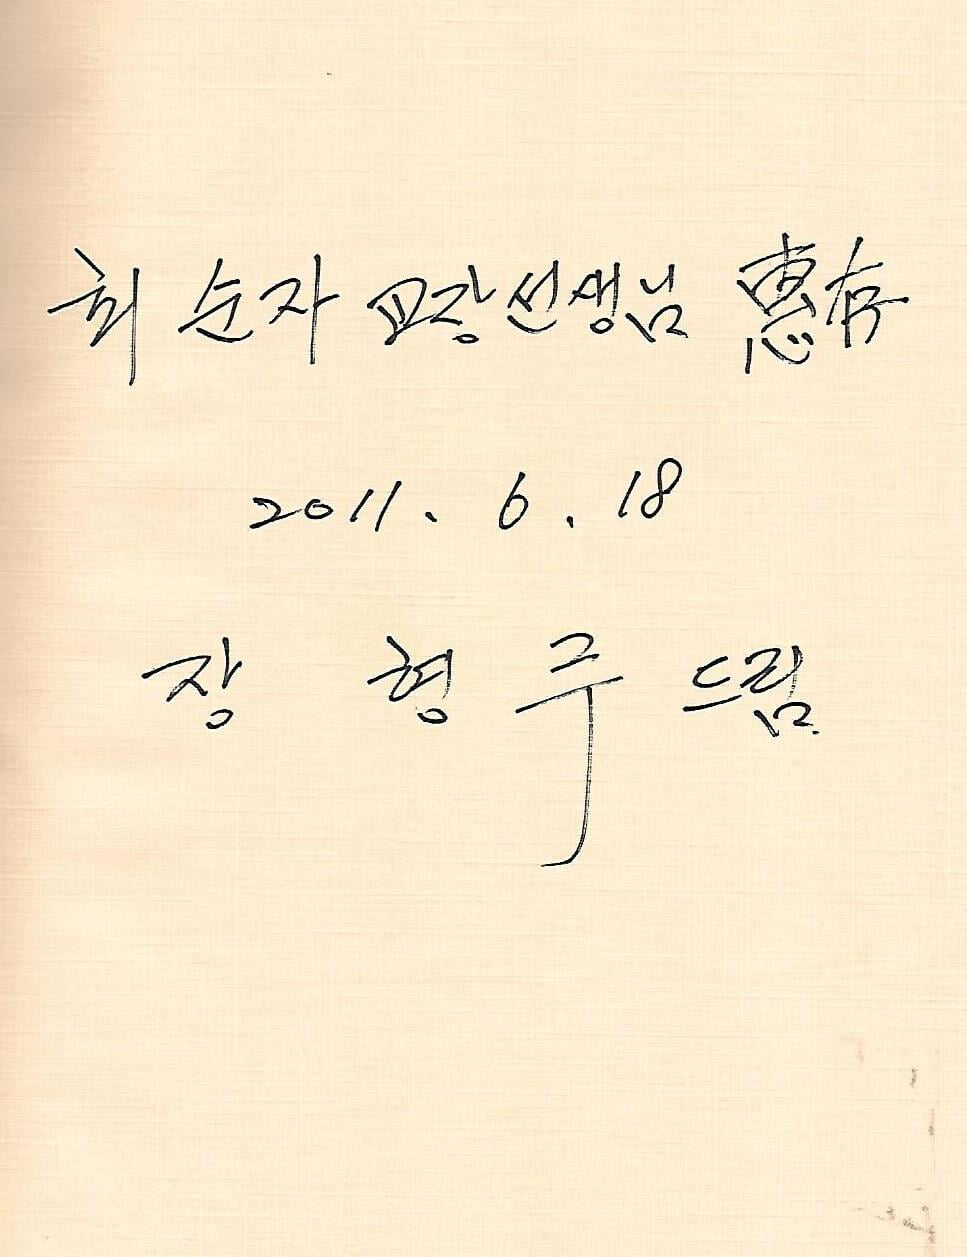 최순자 교장선생님 惠存
2011. 6. 18
장 형 구 드림.